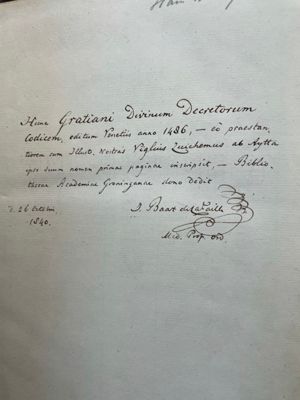 Hunc Gratiani Divinum Decretorum
Codicem, editum Venetiis anno 1486, — eò praestan-
tiorem cum Illust. Nostras Viglius Zuichemus ab Aytta
ipse suum nomen primae paginae inscripsit, — Biblio-
thecae Academiae Groninganae dono dedit
d. 26 Octobris
1840.
J. Baart de la Faille
Med. Prof. ord.